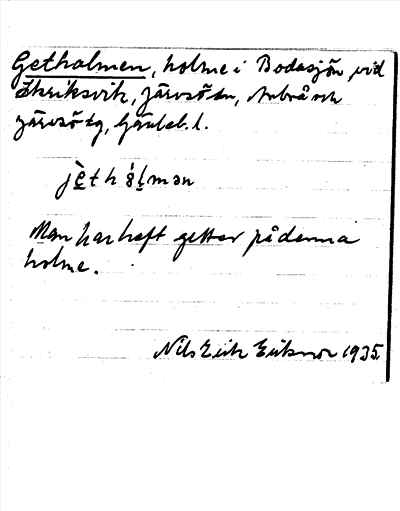 Getholmen, holme i Bodasjön vid
Ekriksvik, Järvsö sn, Arbrå och
Järvsö tg, Gävleb. l.
jèthålmən
Man har haft getter på denna
holme.
Nils Erik Eriksson 1935.